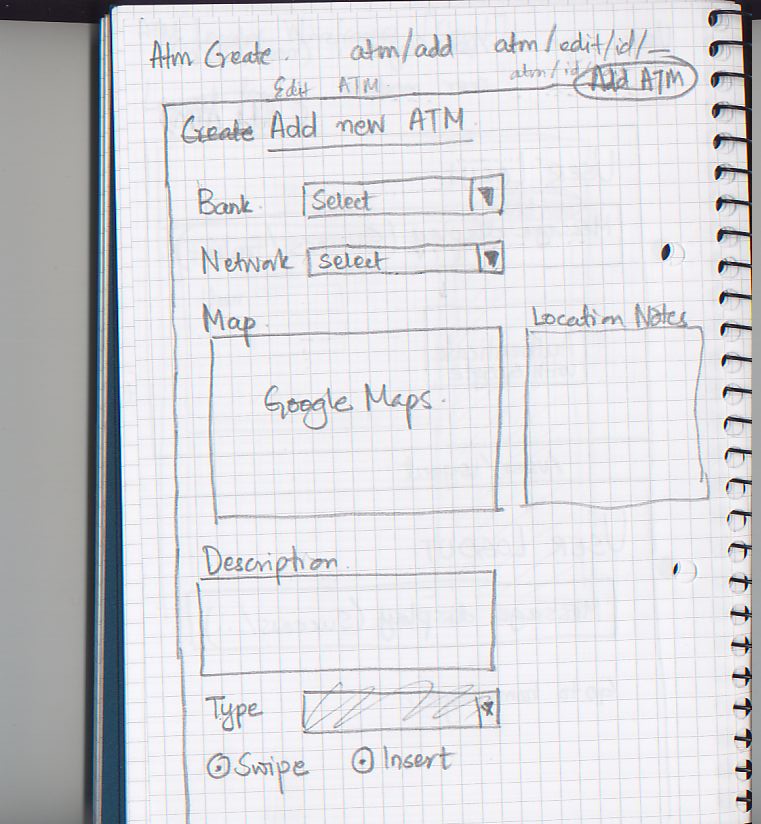 Atm Create. atm/add atm/edit/id/_
Edit ATM. atm/id/ Add ATM
Create Add new ATM.
Bank. Select
Network Select
Map. Location Notes
Google Maps.
Description.
Type
Swipe Insert